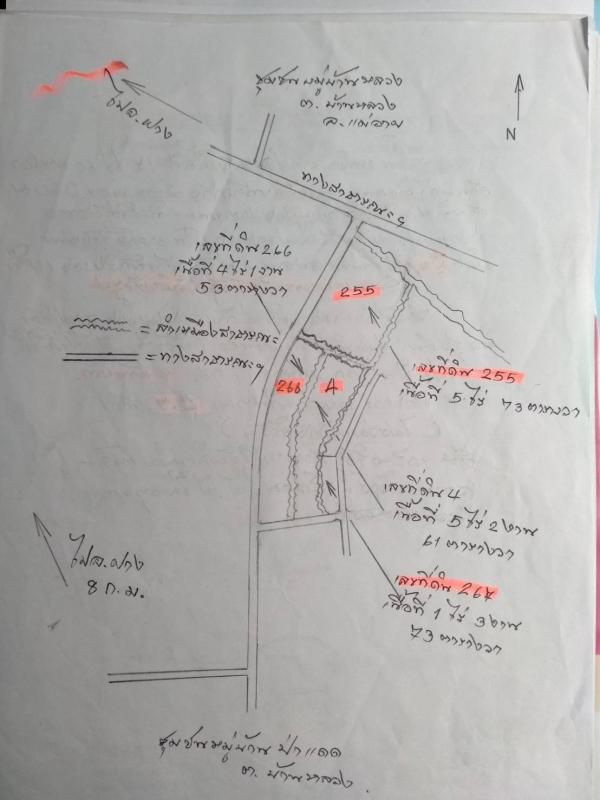 ชุมชนหมู่บ้านหลวง
ต. บ้านหลวง
อ. แม่อาย
ไปอ.ฝาง
N
ทางสาธารณะๆ
เลขที่ดิน 266
เนื้อที่ 4 ไร่ 1 งาน
53 ตารางวา
255
= ลำเหมืองสาธารณะ
= ทางสาธารณะๆ
266
4
เลขที่ดิน 255
เนื้อที่ 5 ไร่ 73 ตารางวา
เลขที่ดิน 4
เนื้อที่ 5 ไร่ 2 งาน
61 ตารางวา
ไปอ.ฝาง
8 ก.ม.
เลขที่ดิน
เนื้อที่ 1 ไร่ 3 งาน
73 ตารางวา
ชุมชนหมู่บ้าน ป่าแดง
ต. บ้านหลวง